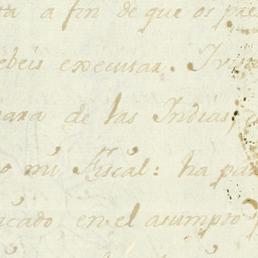 a fin de que os pre
ebeis executar. Tv
ara de las Indias,
o mi Fiscal: ha pa
icado en el asumpto